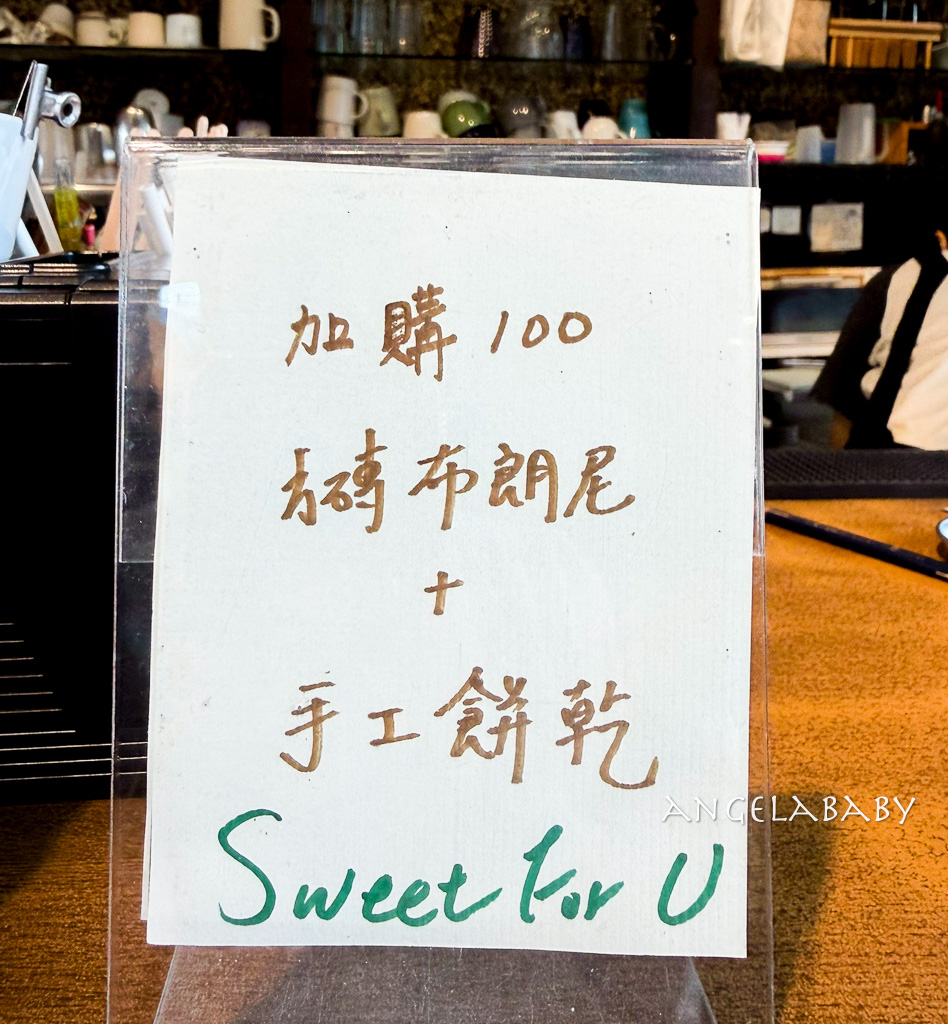 加購 100
方磚布朗尼
+
手工餅乾
Sweet For U
ANGELABABY